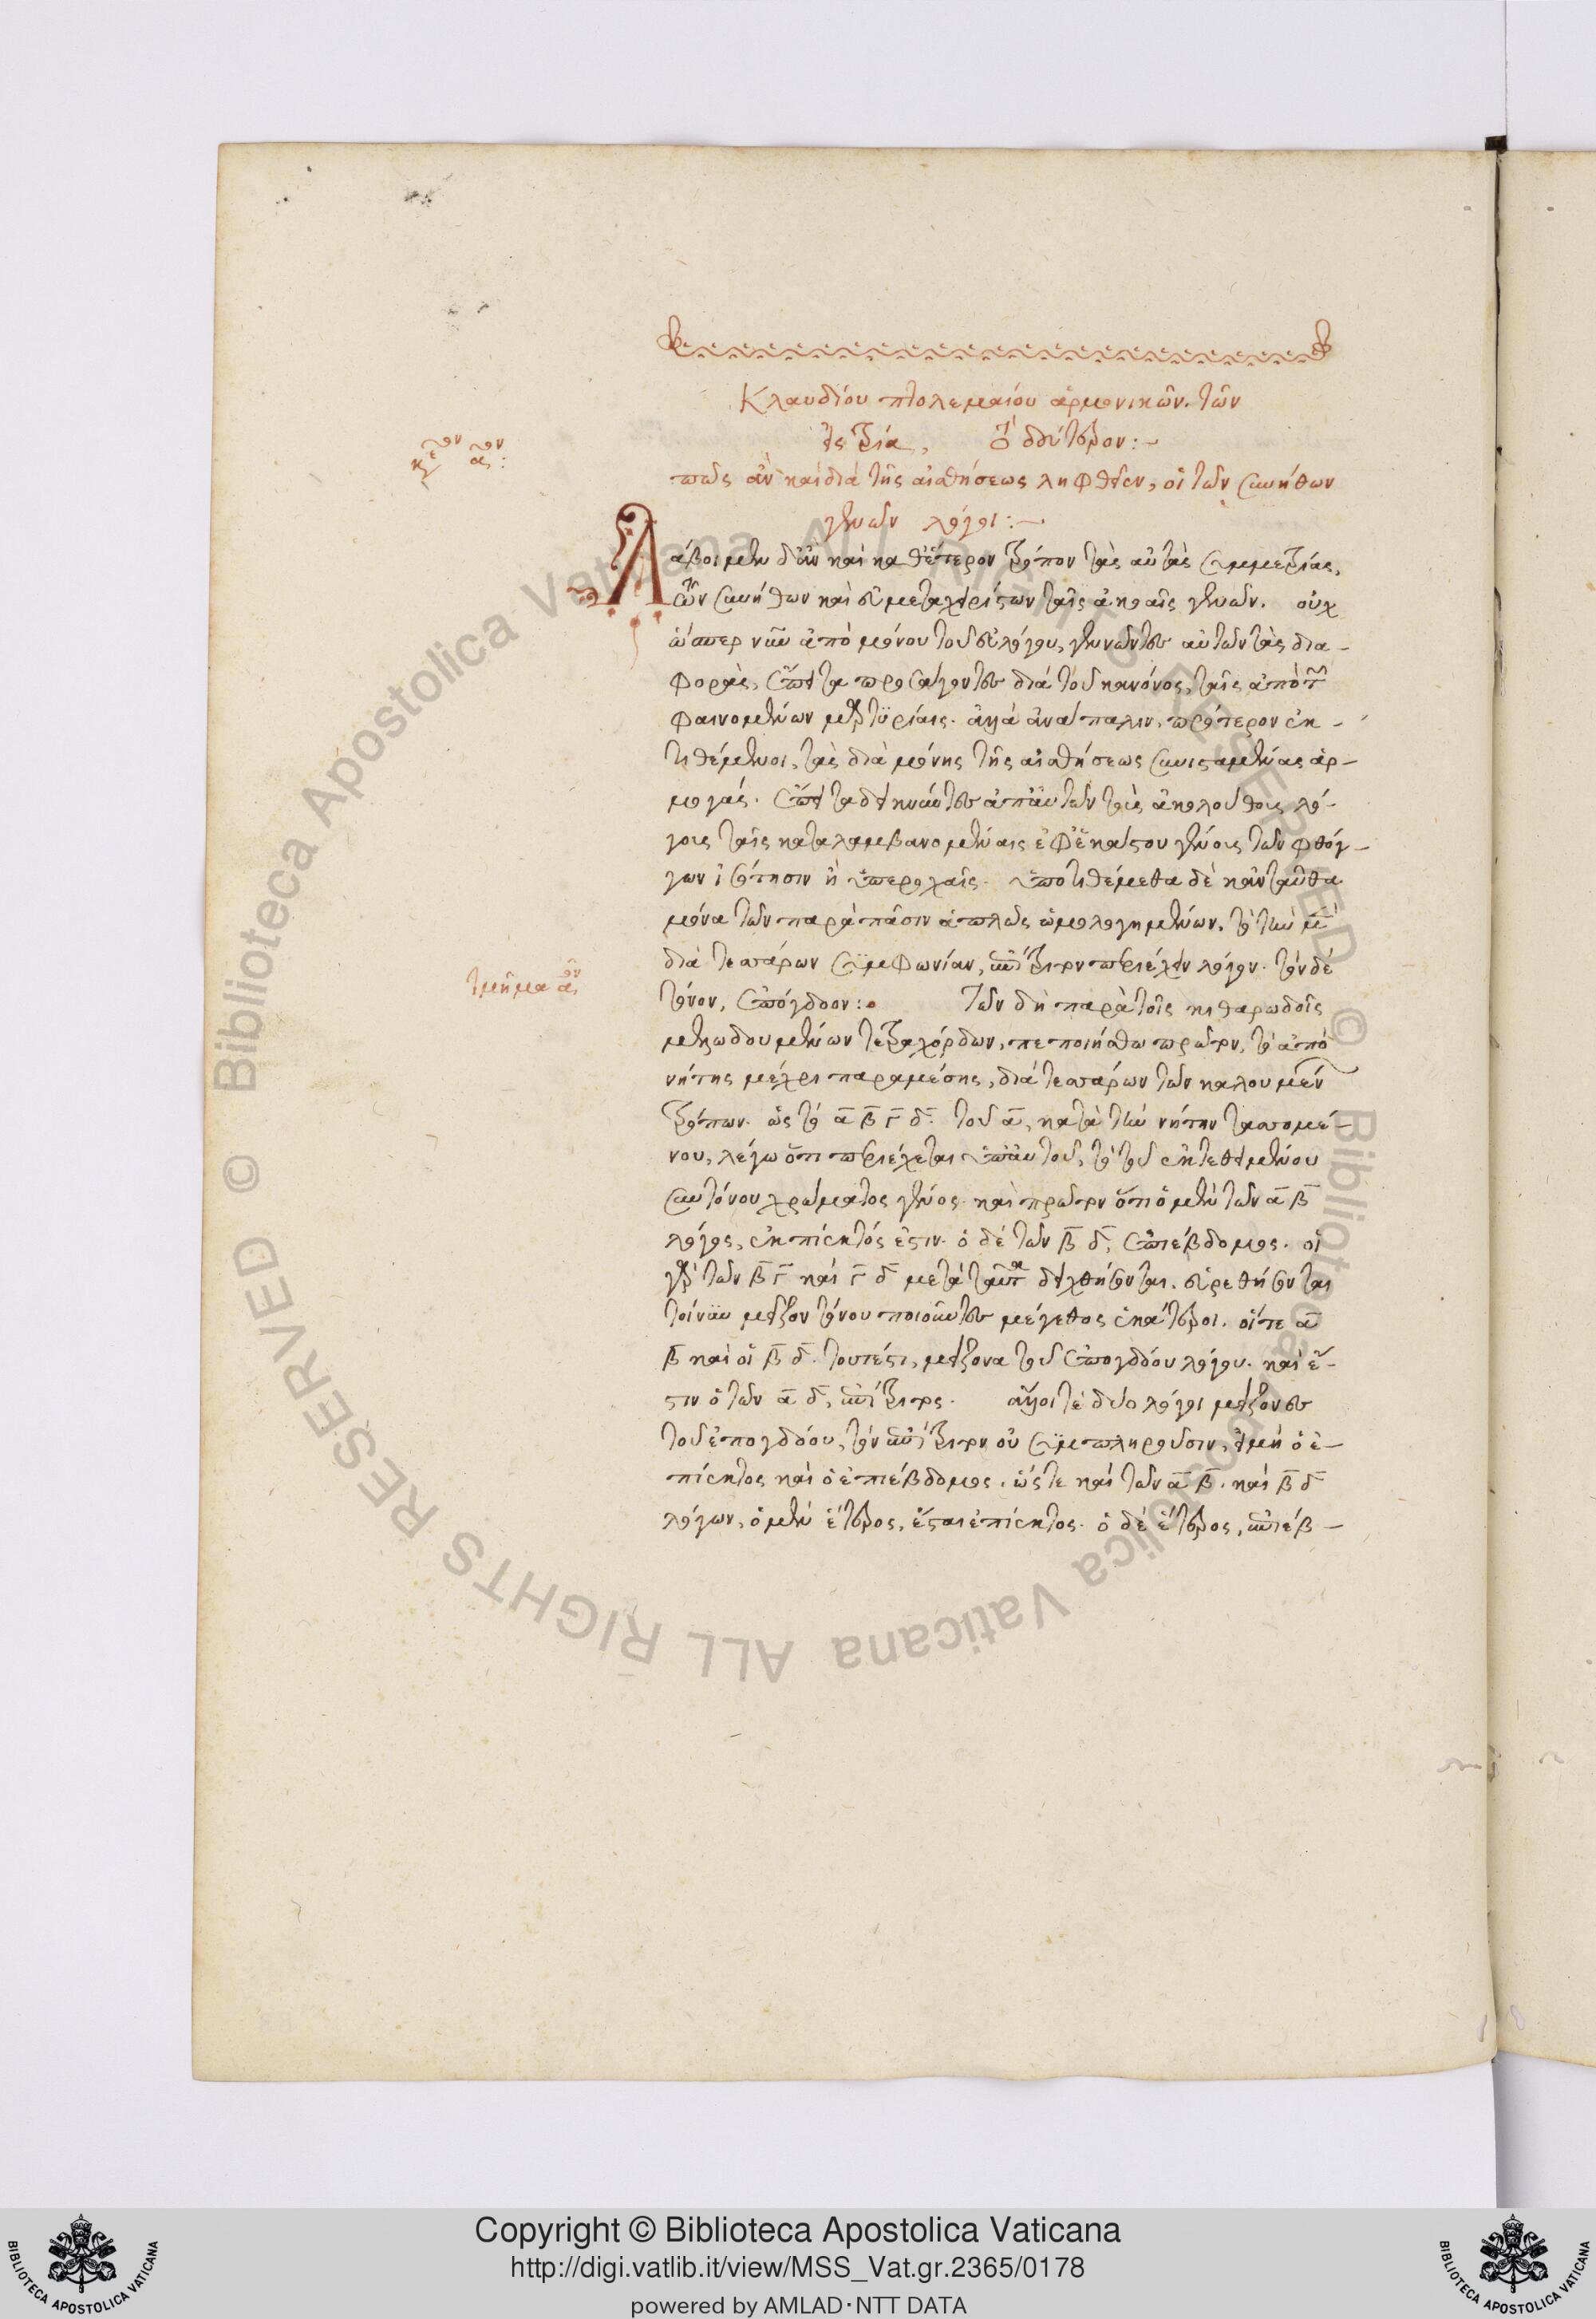 Κλαυδίου πτολεμαίου ἁρμονικῶν. τῶν
εἰς τρία, τὸ δεύτερον:~
κεφάλαιον αον:
πῶς ἂν καὶ διὰ τῆς αἰσθήσεως ληφθεῖεν, οἱ τῶν συνήθων
γενῶν λόγοι:~
Λάβοιμεν δ' ἂν καὶ καθ' ἕτερον τρόπον τὰς αὐτὰς συμμετρίας,
τῶν συνήθων καὶ εὐμεταχειρίστων ταῖς ἀκοαῖς γενῶν. οὐχ
ὥσπερ νῦν ἀπὸ μόνου τοῦ εὐλόγου, γεννῶντες αὐτῶν τὰς δια-
φορὰς, ἔπειτα προσάγοντες διὰ τοῦ κανόνος, ταῖς ἀπὸ τῶν
φαινομένων μαρτυρίαις. ἀλλὰ ἀνάπαλιν, πρότερον ἐκ-
τιθέμενοι, τὰς διὰ μόνης τῆς αἰσθήσεως συνισταμένας ἁρ-
μογάς. ἔπειτα δεικνύντες ἀπ' αὐτῶν τοὺς ἀκολούθους λό-
γους ταῖς καταλαμβανομέναις ἐφ' ἑκάστου γένους τῶν φθόγ-
γων ἰσότησιν ἢ ὑπεροχαῖς. ὑποτιθέμεθα δὲ κἀνταῦθα
μόνα τῶν παρὰ πᾶσιν ἁπλῶς ὡμολογημένων. τὸ τὴν μὲν
διὰ τεσσάρων συμφωνίαν, ἐπίτριτον περιέχειν λόγον. τὸν δὲ
τόνον, ἐπόγδοον: Τῶν δὴ παρὰ τοῖς κιθαρωδοῖς
τμῆμα αον
μελωδουμένων τετραχόρδων, πεποιήσθω πρῶτον, τὸ ἀπὸ
νήτης μέχρι παραμέσης, διὰ τεσσάρων τῶν καλουμένων
τρόπων. ὡς τὸ α β γ δ. τοῦ α, κατὰ τὴν νήτην τασσομέ-
νου, λέγω ὅτι περιέχεται ὑπ' αὐτοῦ, τὸ τοῦ ἐκτεθειμένου
συντόνου χρώματος γένος. καὶ πρῶτον ὅτι ὁ μὲν τῶν α β
λόγος, ἐκπίεκτός ἐστιν. ὁ δὲ τῶν β δ, ἐπιέβδομος. οἱ
γὰρ τῶν β γ καὶ γ δ μετὰ ταῦτα δειχθήσονται. εὑρεθήσονται
τοίνυν μεῖζον τόνου ποιοῦντες μέγεθος ἑκάτεροι. οἵ τε α
β καὶ οἱ β δ. τουτέστι, μείζονα τοῦ ἐπογδόου λόγου. καὶ ἔ-
στιν ὁ τῶν α δ, ἐπίτριτος. ἄλλοι τὲ δύο λόγοι μείζονες
τοῦ ἐπογδόου, τὸν ἐπίτριτον οὐ συμπληροῦσιν, εἰ μὴ ὁ ἐ-
πίεκτος καὶ ὁ ἐπιέβδομος. ὥστε καὶ τῶν α β. καὶ β δ
λόγων, ὁ μὲν ἕτερος, ἔσται ἐπίεκτος. ὁ δὲ ἕτερος, ἐπιέβ-
Copyright © Biblioteca Apostolica Vaticana
http://digi.vatlib.it/view/MSS_Vat.gr.2365/0178
powered by AMLAD·NTT DATA
BIBLIOTECA APOSTOLICA VATICANA
BIBLIOTECA APOSTOLICA VATICANA
© Biblioteca Apostolica Vaticana ALL RIGHTS RESERVED
© Biblioteca Apostolica Vaticana ALL RIGHTS RESERVED